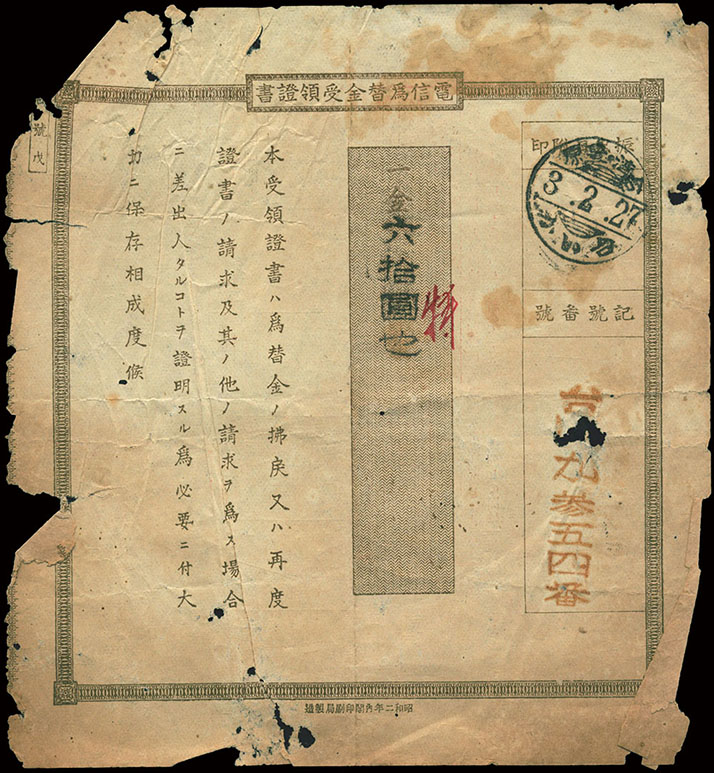 電信爲替金受領證書
振出日附印
3.2.27
記號番號
九参五四番
一金六拾圓也
特
本受領證書ハ爲替金ノ拂戾又ハ再度
證書ノ請求及其ノ他ノ請求ヲ爲ス場合
ニ差出人タルコトヲ證明スル爲必要ニ付大
切ニ保存相成度候
號戊
昭和二年內閣印刷局製造